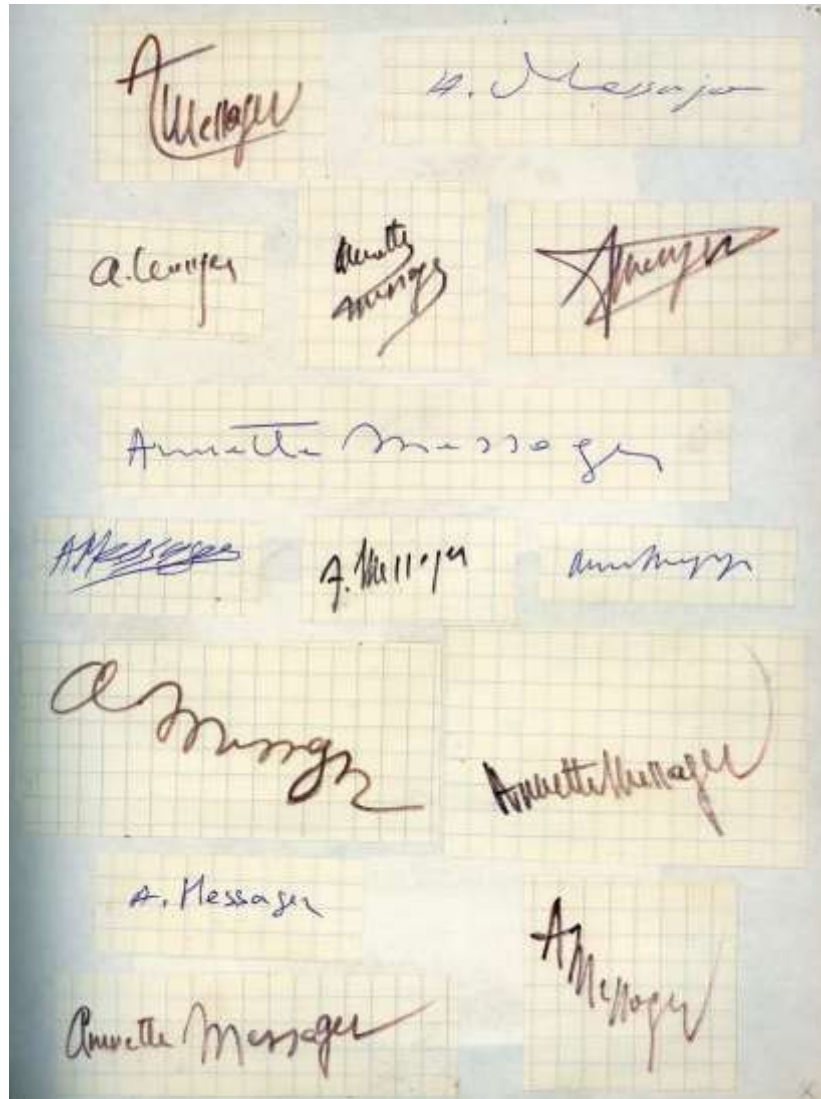 A Messager
A. Messager
A. Messager
Annette
Messager
A Messager
Annette Messager
A Messager
A. Messager
Ann Messager
A Messager
Annette Messager
A. Messager
A
Messager
Annette Messager